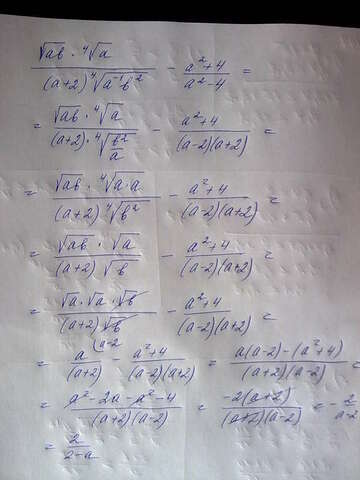 (√ab · ⁴√a) / ((a+2) ⁴√(a⁻¹b²)) − (a²+4)/(a²−4) =
= (√ab · ⁴√a) / ((a+2) · ⁴√(b²/a)) − (a²+4)/((a−2)(a+2)) =
= (√ab · ⁴√(a·a)) / ((a+2) ⁴√(b²)) − (a²+4)/((a−2)(a+2)) =
= (√ab · √a) / ((a+2) √b) − (a²+4)/((a−2)(a+2)) =
= (√a · √a · √b) / ((a+2) √b) − (a²+4)/((a−2)(a+2)) =
= a (a−2 / (a+2) − (a²+4)/((a−2)(a+2)) = (a(a−2)−(a²+4))/((a+2)(a−2)) =
= (a²−2a−a²−4)/((a+2)(a−2)) = (−2(a+2))/((a+2)(a−2)) = −2/(a−2)
= 2/(2−a)